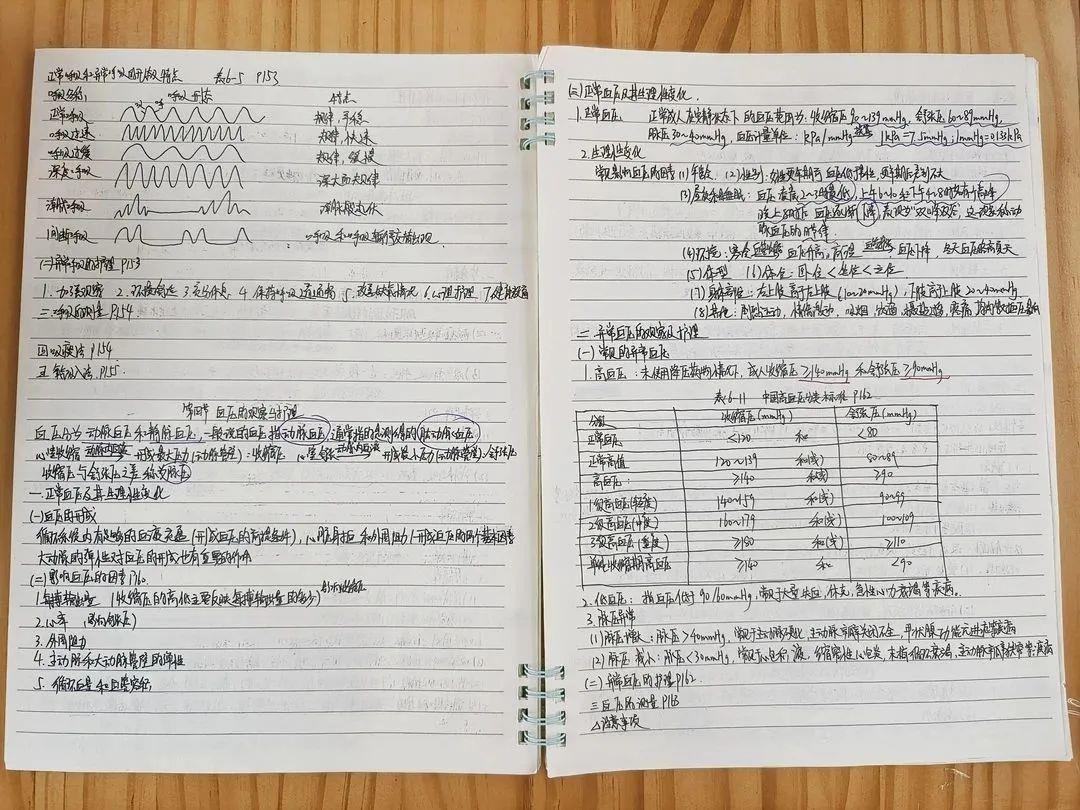 正常呼吸和异常呼吸的形状及特点 表6-5 P153
呼吸名称 呼吸形态 特点
正常呼吸 吸 呼 规律,平稳
呼吸过速 规律,快速
呼吸过缓 规律,缓慢
深度呼吸 深大而规律
潮式呼吸 潮水般起伏
间断呼吸 呼吸和呼吸暂停交替出现
(二)异常呼吸的护理 P153
1.加强观察 2.环境舒适 3.充分休息 4.保持呼吸道通畅 5.改善缺氧情况 6.心理护理 7.健康教育
三.呼吸的测量 P154
四 吸痰法 P154
五 氧气吸入法 P155
第四节 血压的观察与护理
血压分为动脉血压和静脉血压,一般说的血压指动脉血压,通常指的是测得的肱动脉血压
心室收缩 动脉内血液 形成最大压力(动脉管壁):收缩压 心室舒张 动脉内血液 形成最小压力(动脉管壁):舒张压
收缩压与舒张压之差称为脉压
一.正常血压及其生理性变化
(一)血压的形成
循环系统内有足够的血液充盈(形成血压的前提条件),心脏射血和外周阻力(形成血压的两个基本因素
大动脉的弹性对血压的形成也有重要的作用
(二)影响血压的因素 P160
1.每搏输出量 (收缩压的高低主要反映每搏输出量的多少) 影响收缩压
2.心率 (影响舒张压)
3.外周阻力
4.主动脉和大动脉管壁的弹性
5.循环血量和血管容积
(三)正常血压及其生理性变化.
1.正常血压 正常成人在安静状态下的血压范围为:收缩压90~139mmHg,舒张压60~89mmHg,
脉压30~40mmHg,血压计量单位:kPa/mmHg 换算 1kPa=7.5mmHg;1mmHg=0.133kPa
2.生理性变化
常见影响血压的因素(1)年龄,(2)性别:女性更年期前血压低于男性,更年期后差别不大
(3)昼夜和睡眠:血压凌晨2~3时最低,上午6~10和下午4~8时各有一个高峰
晚上8时后血压逐渐下降,表现为"双峰双谷",这一现象称动
脉血压的日节律
(4)环境:寒冷 血压升高,高温 血压下降,冬天血压略高夏天
(5)体型 (6)体位:卧位<坐位<立位
(7)身体部位:右上肢高于左上肢(10~20mmHg),下肢高于上肢20~40mmHg
(8)其他:剧烈运动,情绪激动,吸烟,饮酒,摄盐过多,疼痛,均对血压有影响
二 异常血压的观察及护理
(一)常见的异常血压
1.高血压:未使用降压药物情况下,成人收缩压≥140mmHg和舒张压≥90mmHg
表6-11 中国高血压分类标准 P162
分级 收缩压(mmHg) 舒张压(mmHg)
正常血压 <120 和 <80
正常高值 120~139 和(或) 80~89
高血压: ≥140 和(或) ≥90
1级高血压(轻度) 140~159 和(或) 90~99
2级高血压(中度) 160~179 和(或) 100~109
3级高血压(重度) ≥180 和(或) ≥110
单纯收缩期高血压 ≥140 和 <90
2.低血压:指血压低于90/60mmHg,常见于大量失血,休克,急性心力衰竭等疾病。
3.脉压异常
(1)脉压增大:脉压>40mmHg,常见于主动脉硬化,主动脉瓣关闭不全,甲状腺功能亢进等疾病
(2)脉压减小:脉压<30mmHg,常见于心包积液,缩窄性心包炎,末梢循环衰竭,主动脉瓣狭窄等疾病
(二)异常血压的护理 P162.
三 血压的测量 P163
△注意事项